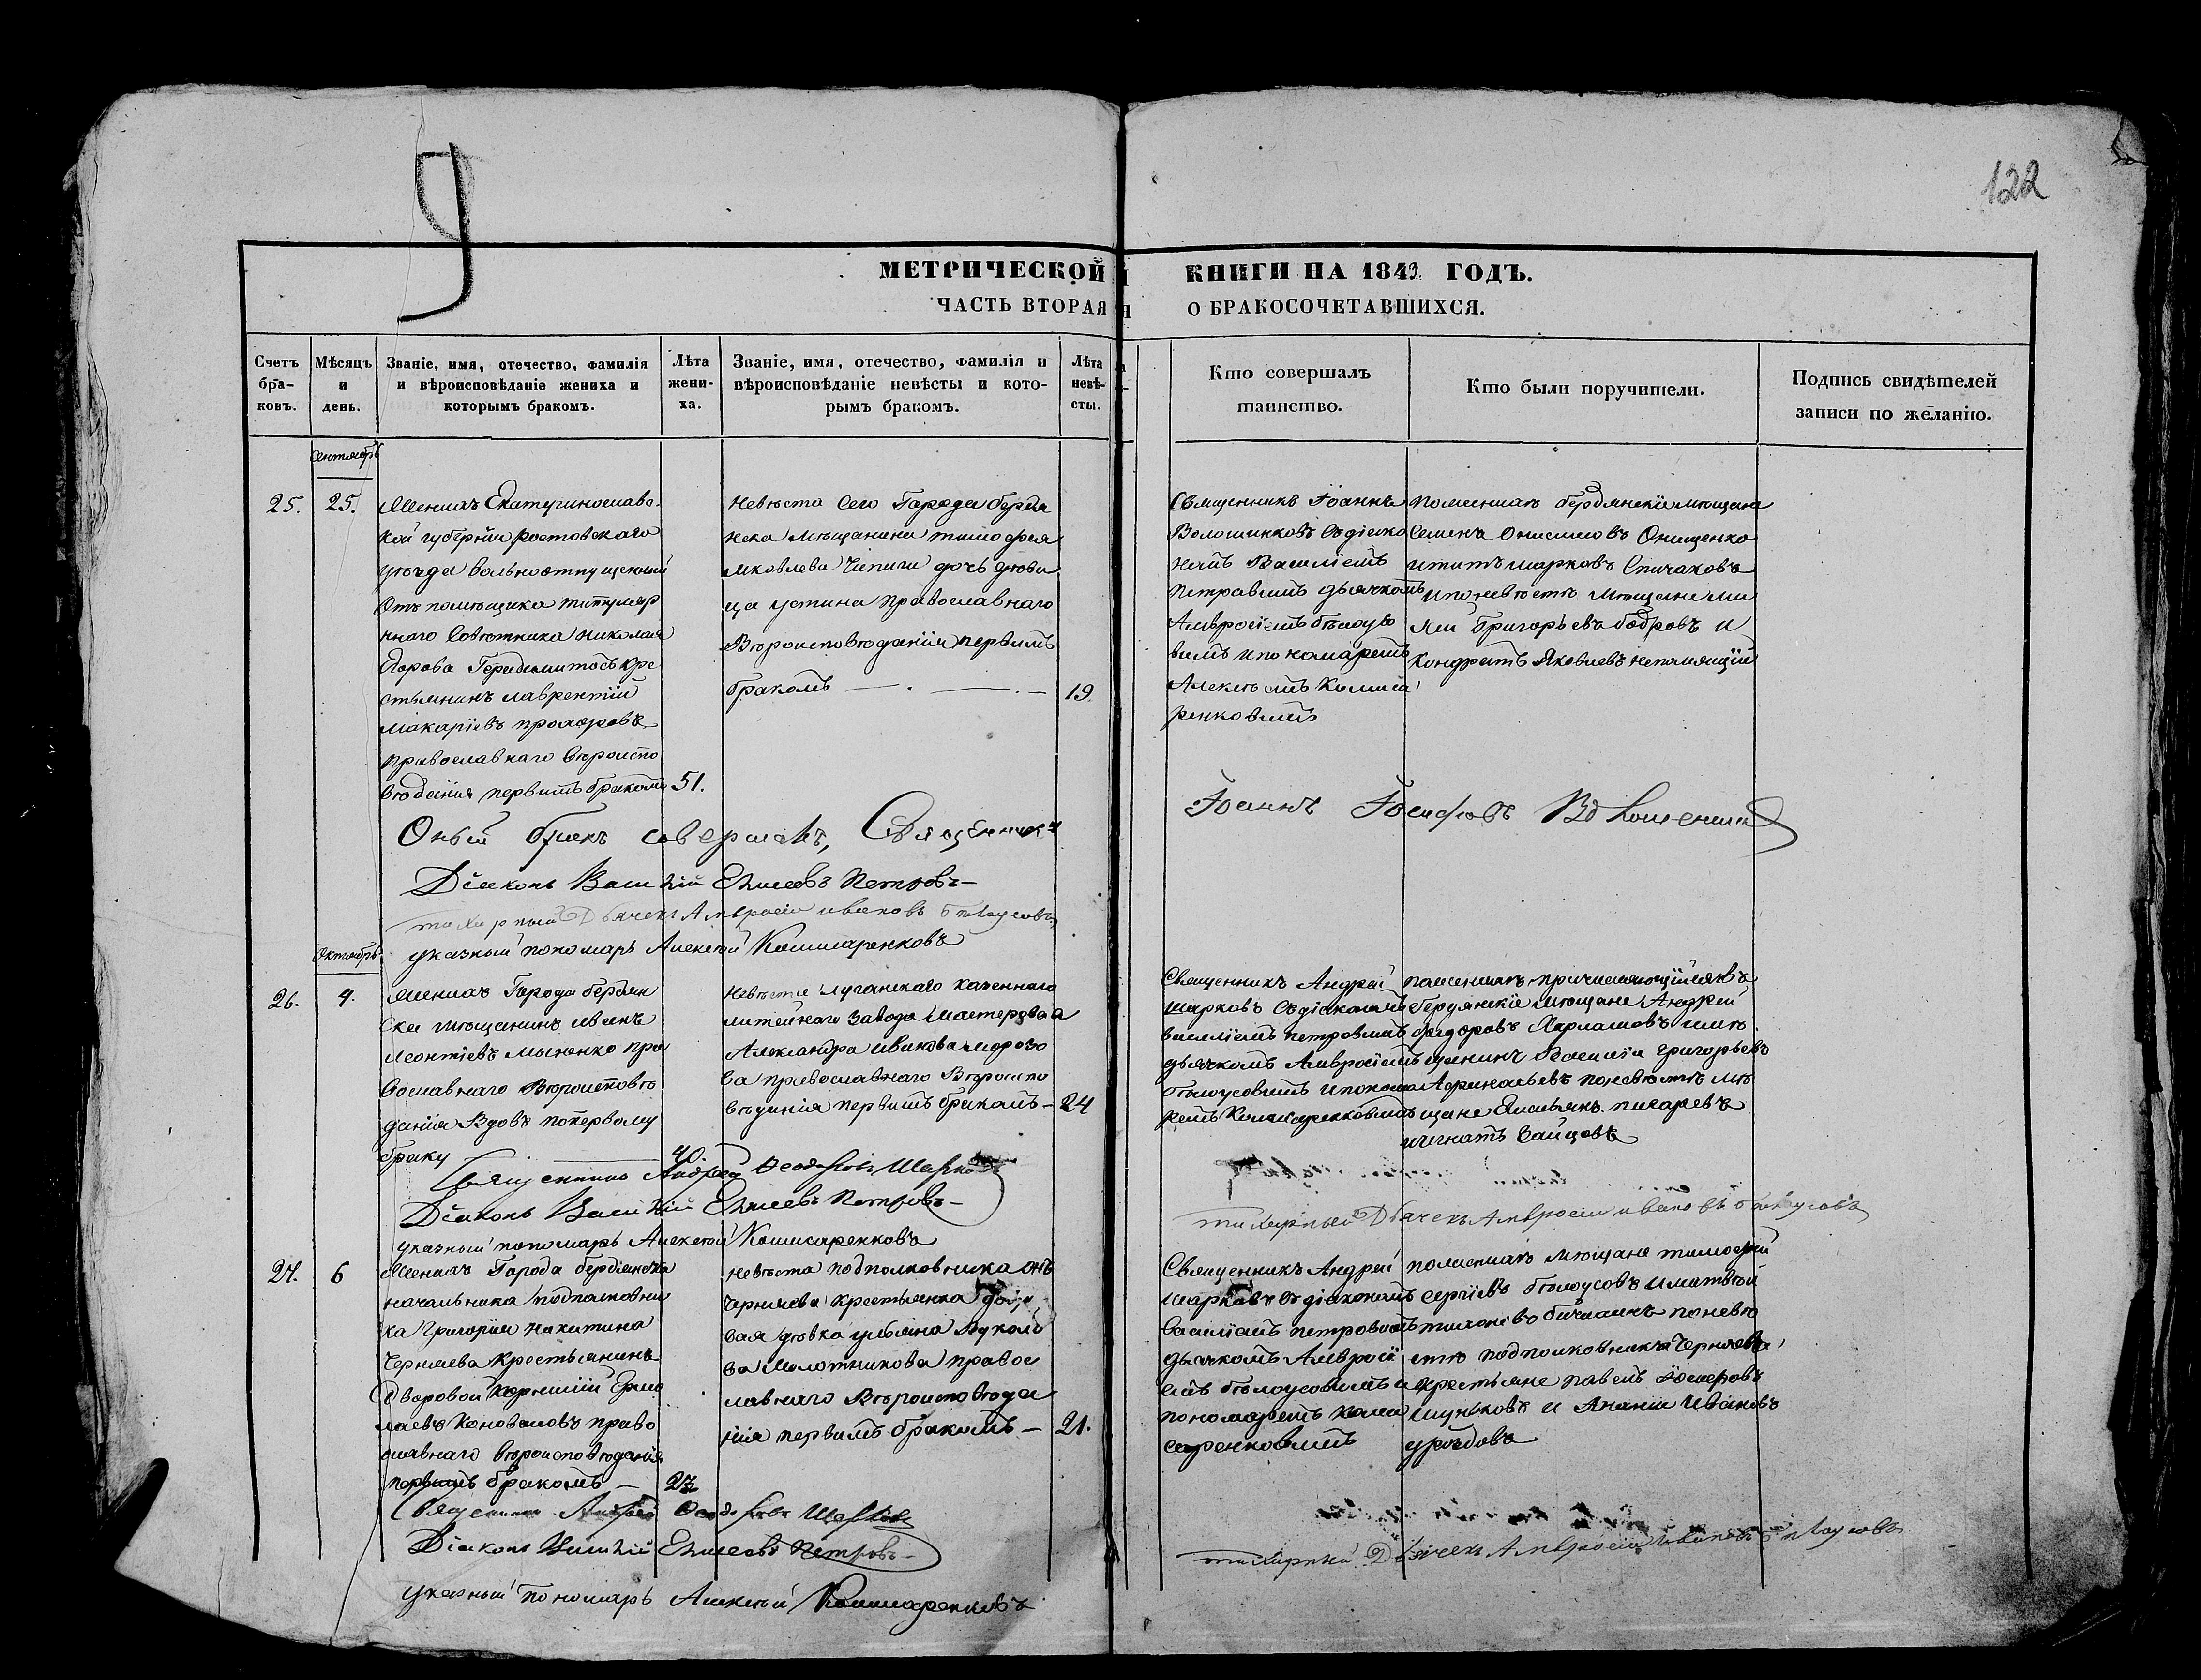 9
122
МЕТРИЧЕСКОЙ КНИГИ НА 1849 ГОДЪ.
ЧАСТЬ ВТОРАЯ О БРАКОСОЧЕТАВШИХСЯ.
Счетъ бра-ковъ.
Мѣсяцъ и день.
Званіе, имя, отечество, фамилія и вѣроисповѣданіе жениха и которымъ бракомъ.
Лѣта жени-ха.
Званіе, имя, отечество, фамилія и вѣроисповѣданіе невѣсты и кото-рымъ бракомъ.
Лѣта невѣ-сты.
Кто совершалъ таинство.
Кто были поручители.
Подпись свидѣтелей записи по желанію.
Сентябрь
25.
25.
Женихъ Екатеринослав-
кой губерніи ростовскаго
уѣзда вольноотпущенный
отъ помѣщика титуляр
ннаго Совѣтника николая
крестьянинъ лаврентій
макаріевъ прохоровъ
православнаго вѣроиспо
вѣданія первымъ бракомъ
51.
Невѣста Сего Города бердя
нска мѣщанина тимофея
яковлева дочь дѣви
ца устина православнаго
Вѣроисповѣданія первымъ
бракомъ
19
Священникъ Іоаннъ
Волошинковъ съ діако
номъ Василіемъ
Петровымъ дьячкомъ
Амвросіемъ бѣлоусо
вымъ и пономаремъ
Алексѣемъ Комиса
ренковымъ
По женихѣ бердянскіе мѣщане
Семенъ Онисимовъ Онищенко
и титъ марковъ Спичаковъ
и по невѣстѣ мѣщане
Григорьевъ бобровъ и
Кондратъ Яковлевъ непомнящій
Оный бракъ совершалъ, Священникъ
Іоаннъ Іосифовъ Волошенко
Діаконъ Василій Елисеевъ Петровъ
Дьячекъ Амвросій ивановъ бѣлоусовъ
указный пономарь Алексѣй Комисаренковъ
Октябрь
26.
4.
Женихъ Города бердян
ска мѣщанинъ иванъ
леонтіевъ пра
вославнаго Вѣроисповѣ
данія Вдовъ по первому
браку
40.
Невѣста луганскаго казеннаго
литейнаго завода мастерова
Александра иванова морозо
ва православнаго Вѣроиспо
вѣданія первымъ бракомъ
24
Священникъ Андрей
шарковъ съ діакономъ
василіемъ петровымъ
дьячкомъ Амвросіемъ
бѣлоусовымъ и понома
ремъ Комисаренковымъ
по женихѣ причисляющійся въ
бердянскіе мѣщане Андрей
федоровъ и мѣ
щанинъ Василій григорьевъ
по невѣстѣ мѣ
щане Емельянъ писаревъ
и игнатъ Зайцовъ
Священникъ Андрей Шарковъ
Діаконъ Василій Елисеевъ Петровъ
Дьячекъ Амвросій ивановъ бѣлоусовъ
указный пономарь Алексѣй Комисаренковъ
27.
6
Женихъ Города бердянска
начальника подполковни
ка григорія никитина
Черняева Крестьянинъ
дворовой Корнилій Ермо
лаевъ Коноваловъ право
славнаго вѣроисповѣданія
первымъ бракомъ
27
невѣста подполковника онъ
Черняева крестьянка дворо
вая дѣвка ульяна Вукола
ва православнаго
Вѣроисповѣда
нія первымъ бракомъ
21.
Священникъ Андрей
шарковъ съ діакономъ
василіемъ петровымъ
дьячкомъ Амвросі
емъ бѣлоусовымъ и
пономаремъ коми
саренковымъ
по женихѣ мѣщане тимофей
сергіевъ бѣлоусовъ и матвѣй
тихоновъ по невѣ
стѣ подполковника Черняева
крестьяне павелъ
и Ананій Ивановъ
Священникъ Андрей Шарковъ
Діаконъ Василій Елисеевъ Петровъ
Дьячекъ Амвросій Ивановъ бѣлоусовъ
указный пономарь Алексѣй Комисаренковъ